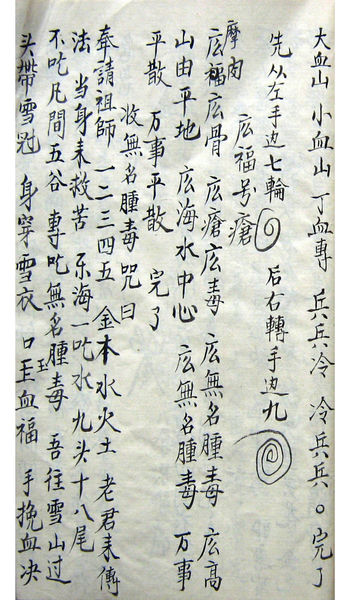 大血山 小血山 丁血專 兵兵冷 冷兵兵。完了
先从左手边七輪 后右轉手边九
摩肉 庅福号瘡
庅福庅骨 庅瘡庅毒 庅無名腫毒 庅高
山由平地 庅海水中心 庅無名腫毒 万事
平散 万事平散 完了
收無名腫毒咒曰
奉請祖師 一二三四五 金木水火土 老君来傳
法 当身来救苦 东海一吃水 九头十八尾
不吃凡間五谷 專吃無名腫毒 吾往雪山过
头帶雪冠 身穿雪衣 口玉血福 手挽血决